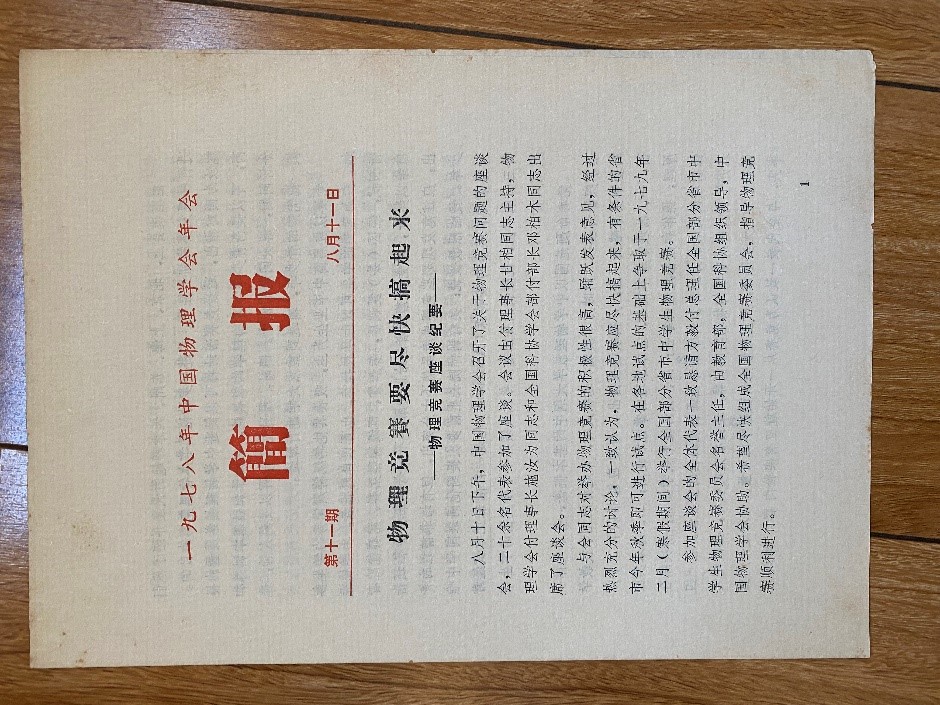 一九七八年中国物理学会年会
簡报
第十一期 八月十一日
物理竞赛要尽快搞起来
——物理竞赛座谈纪要——
八月十日下午，中国物理学会召开了关于物理竞赛问题的座谈
会，二十余名代表参加了座谈。会议由付理事长甘柏同志主持，物
理学会付理事长施汝为同志和全国科协学会部付部长邓柏木同志出
席了座谈会。
与会同志对举办物理竞赛的积极性很高，踊跃发表意见，经过
热烈充分的讨论，一致认为，物理竞赛应尽快搞起来，有条件的省
市今年秋季即可进行试点。在各地试点的基础上争取于一九七九年
二月（寒假期间）举行全国部分省市中学生物理竞赛。
参加座谈会的全体代表一致恳请方毅付总理任全国部分省市中
学生物理竞赛委员会名誉主任，由教育部，全国科协组织领导，中
国物理学会协助。希望尽快组成全国物理竞赛委员会，指导物理竞
赛顺利进行。
1